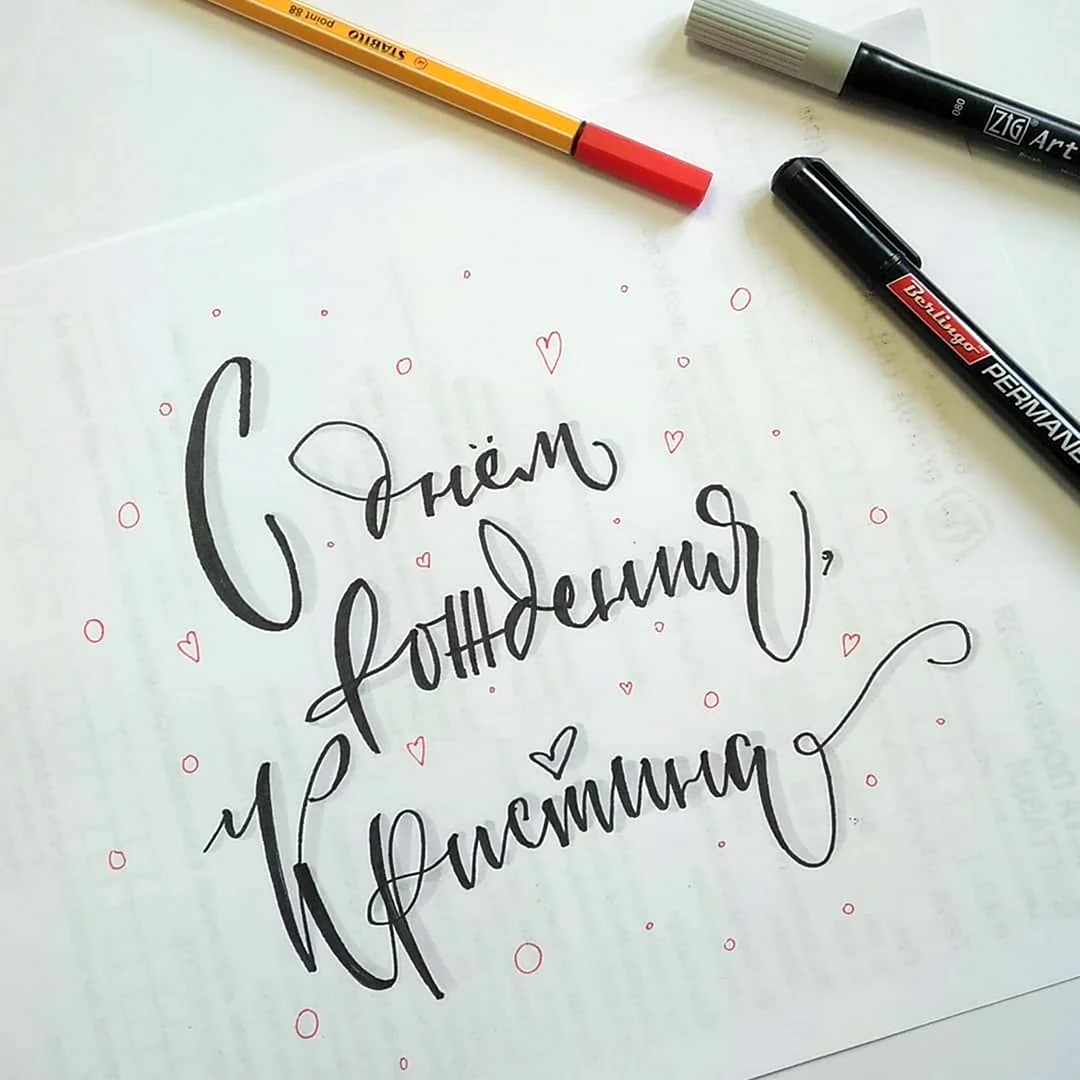 STABILO point 88
080 ZIG Art
Berlingo PERMANE
С днём
рождения,
Кристина